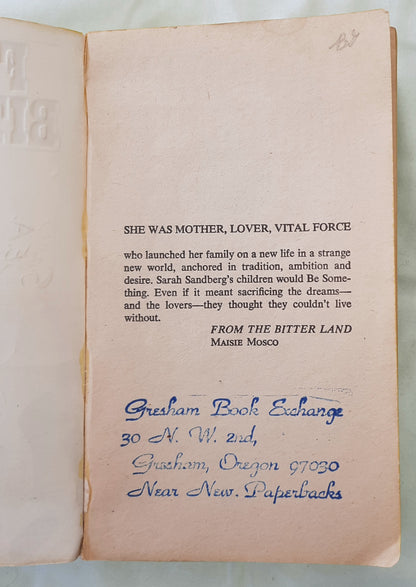 SHE WAS MOTHER, LOVER, VITAL FORCE
who launched her family on a new life in a strange
new world, anchored in tradition, ambition and
desire. Sarah Sandberg's children would Be Some-
thing. Even if it meant sacrificing the dreams—
and the lovers—they thought they couldn't live
without.
FROM THE BITTER LAND
MAISIE MOSCO
Gresham Book Exchange
30 N. W. 2nd,
Gresham, Oregon 97030
Near New. Paperbacks